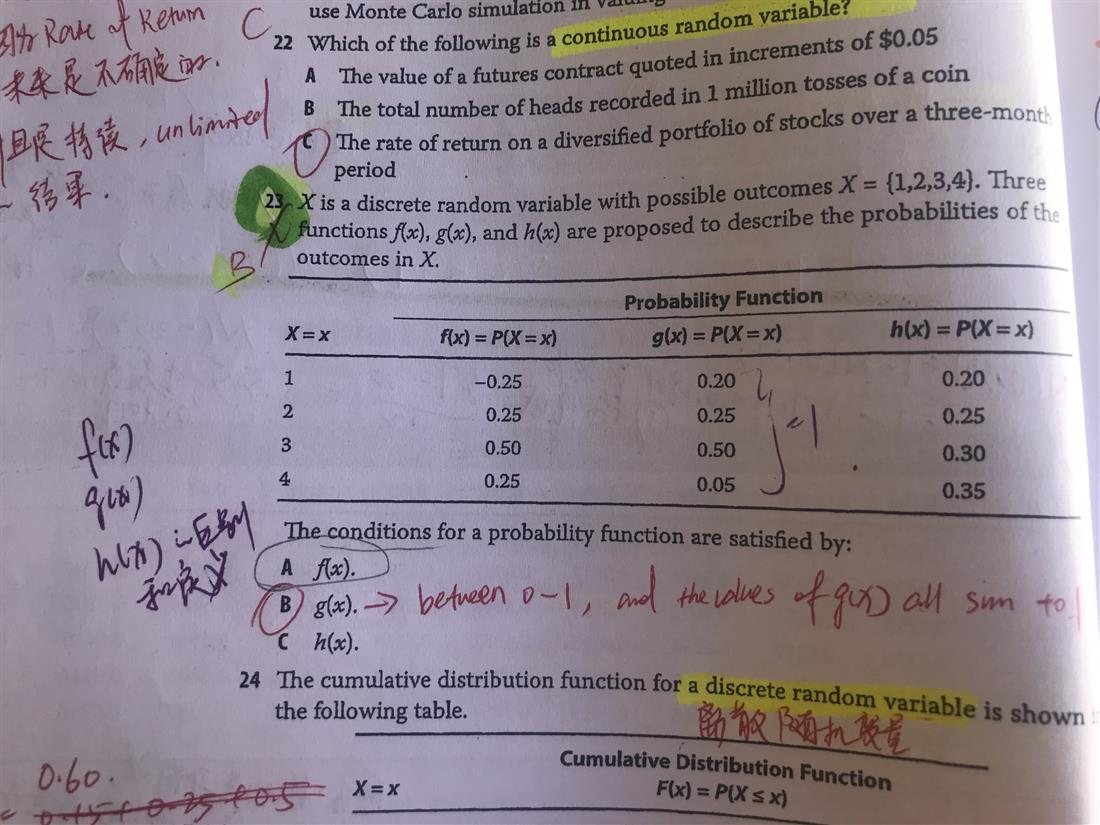 use Monte Carlo simulation in
因为 Rate of Return
C
22 Which of the following is a continuous random variable?
未来是不确定的.
A The value of a futures contract quoted in increments of $0.05
B The total number of heads recorded in 1 million tosses of a coin
且是持续, unlimited
C The rate of return on a diversified portfolio of stocks over a three-month
period
结果.
23 X is a discrete random variable with possible outcomes X = {1,2,3,4}. Three
functions f(x), g(x), and h(x) are proposed to describe the probabilities of the
B
outcomes in X.
Probability Function
X = x f(x) = P(X = x) g(x) = P(X = x) h(x) = P(X = x)
1 −0.25 0.20 0.20
2 0.25 0.25 0.25
=1
3 0.50 0.50 0.30
4 0.25 0.05 0.35
f(x)
g(x)
h(x) 区别
和定义
The conditions for a probability function are satisfied by:
A f(x).
B g(x). → between 0-1, and the values of g(x) all sum to 1
C h(x).
24 The cumulative distribution function for a discrete random variable is shown
the following table.
离散随机变量
Cumulative Distribution Function
X = x F(x) = P(X ≤ x)
0.60.
= 0.15+0.25+0.5